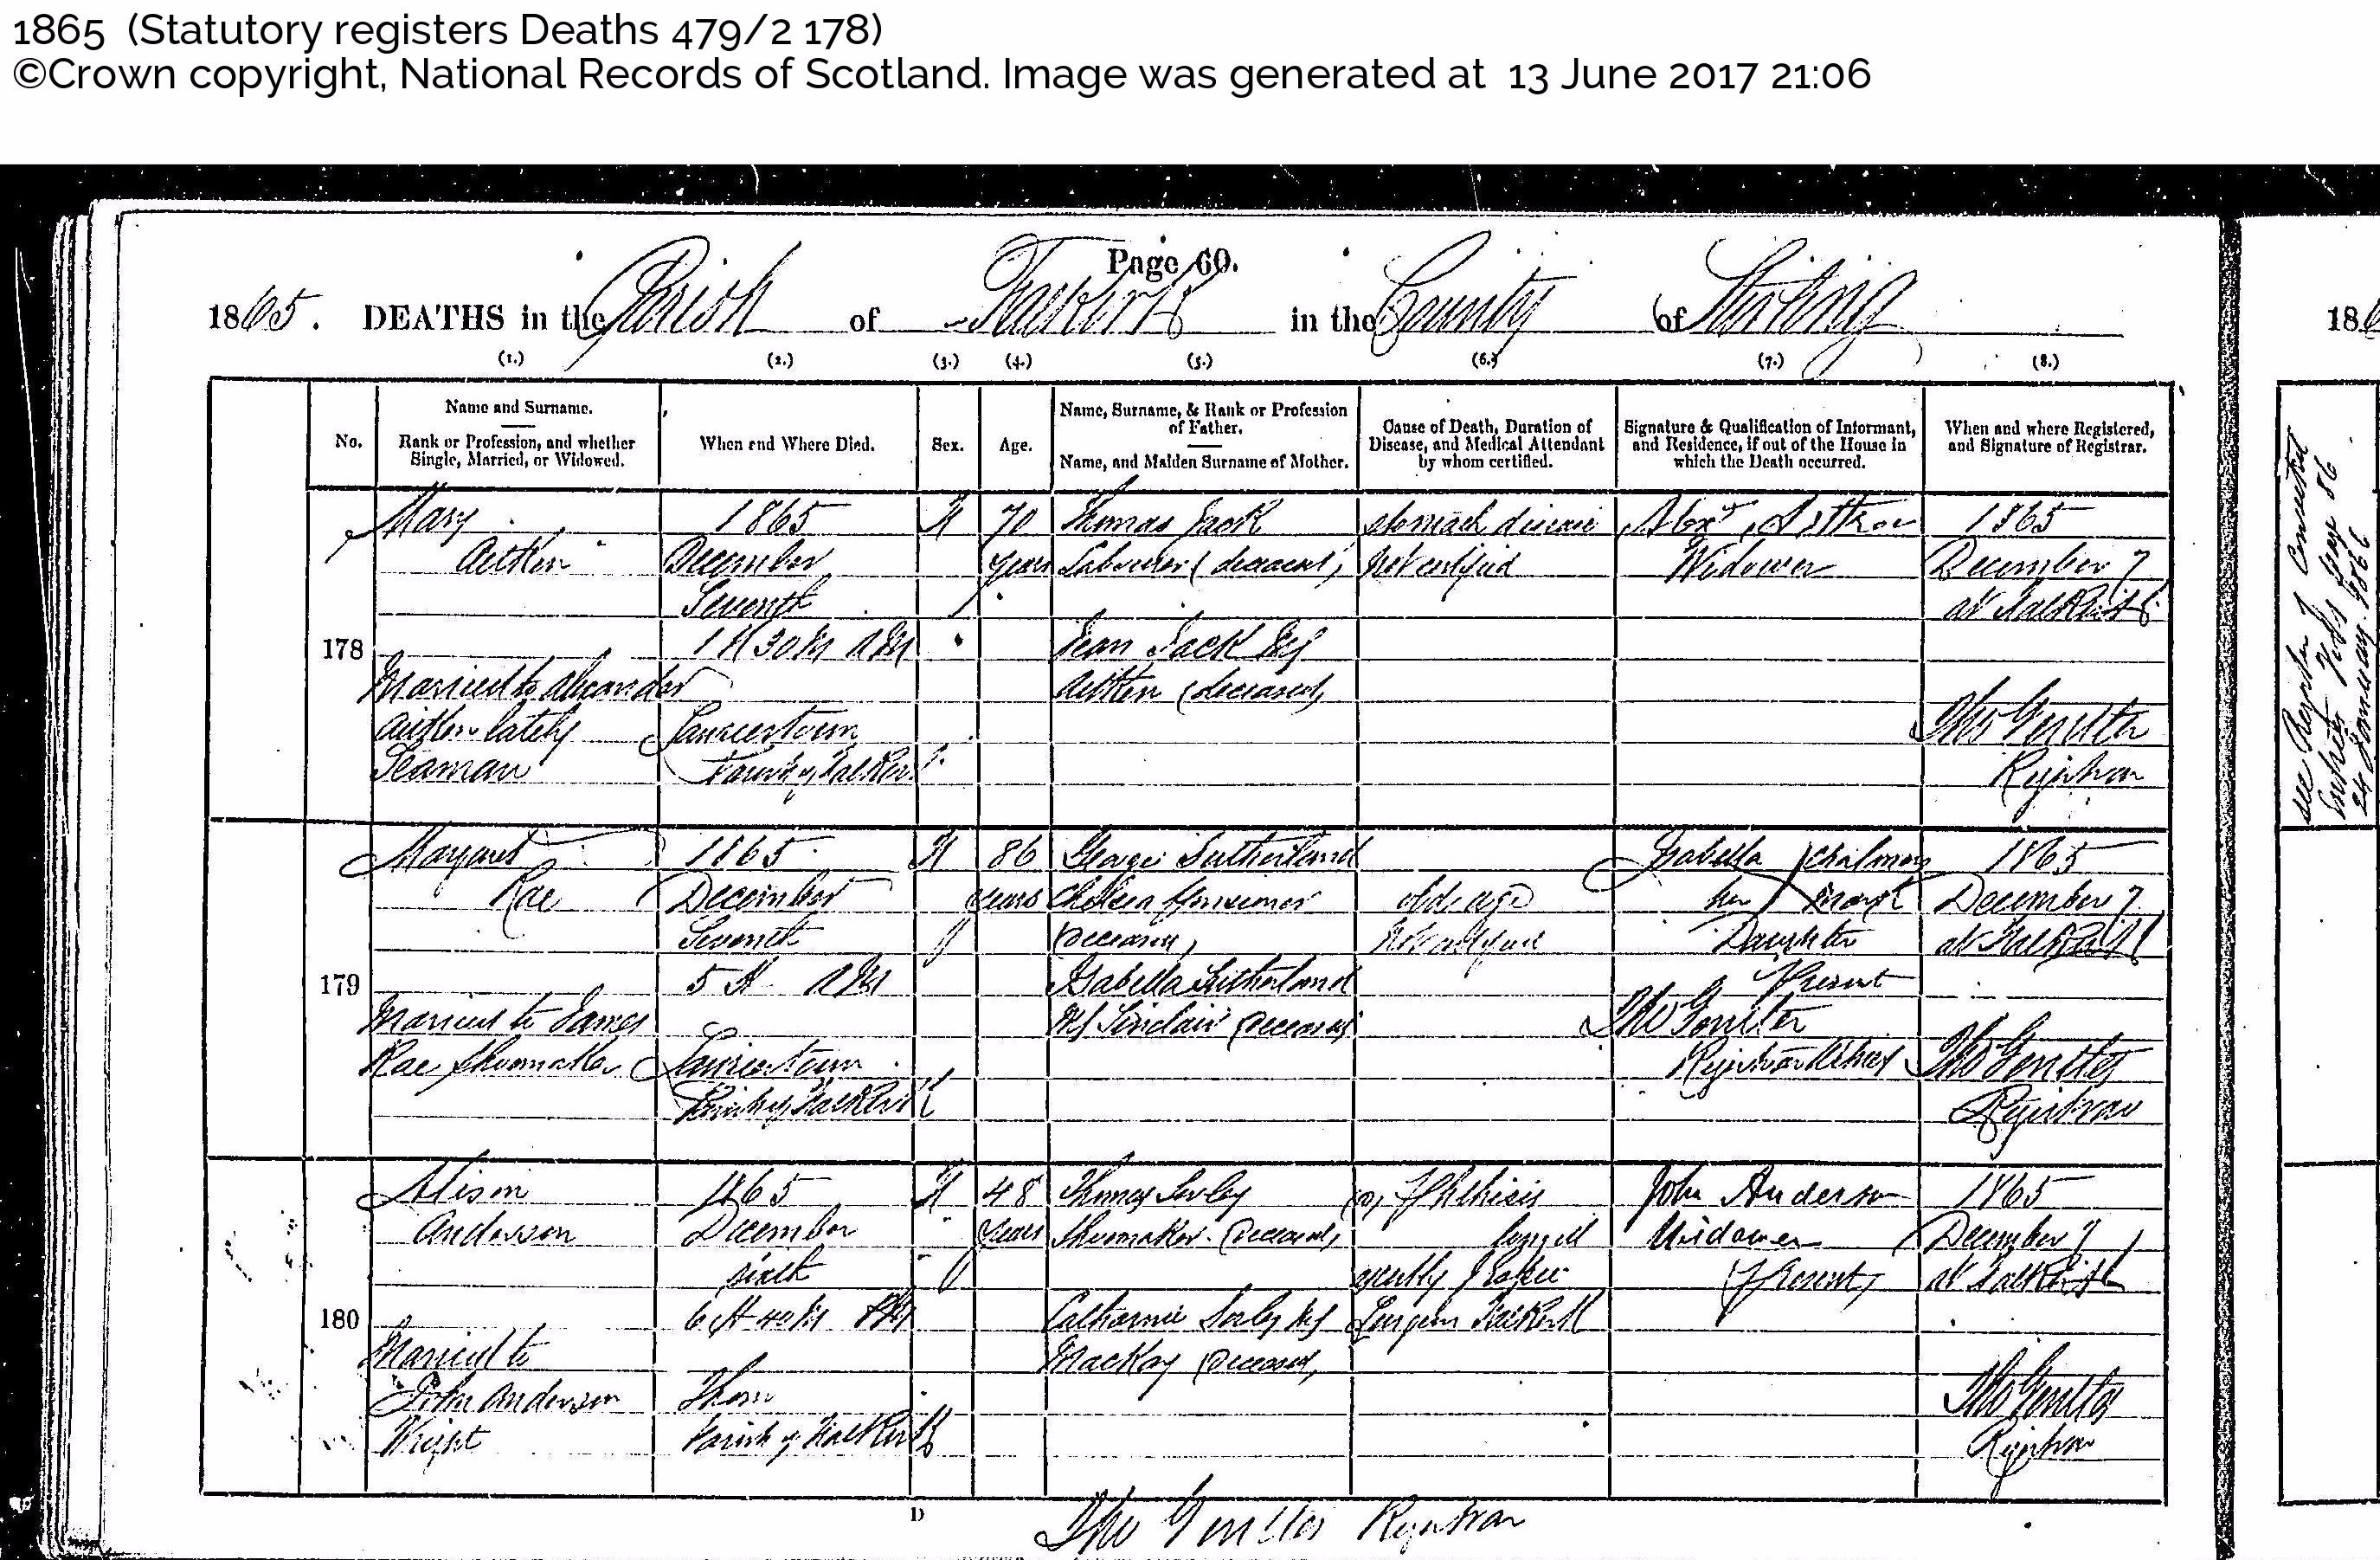 1865 (Statutory registers Deaths 479/2 178)
©Crown copyright, National Records of Scotland. Image was generated at 13 June 2017 21:06
Page 60.
1865. DEATHS in the Parish of Falkirk in the County of Stirling
(1.) (2.) (3.) (4.) (5.) (6.) (7.) (8.)
No.
Name and Surname.
Rank or Profession, and whether
Single, Married, or Widowed.
When and Where Died.
Sex.
Age.
Name, Surname, & Rank or Profession
of Father.
Name, and Maiden Surname of Mother.
Cause of Death, Duration of
Disease, and Medical Attendant
by whom certified.
Signature & Qualification of Informant,
and Residence, if out of the House in
which the Death occurred.
When and where Registered,
and Signature of Registrar.
178
Mary
Aitken
Married to Alexander
Aitken lately
Seaman
1865
December
Seventh
1 H 30 M AM
Laurieston
Parish of Falkirk
70
years
Thomas Jack
Labourer (deceased)
Jean Jack MS
Aitken (deceased)
Stomach disease
Not certified
Alexr Aitken
Widower
1865
December 7
at Falkirk
Registrar
179
Margaret
Rae
Married to James
Rae Shoemaker
1865
December
Seventh
5 H AM
Laurieston
Parish of Falkirk
86
years
George Sutherland
Chelsea Pensioner
(Deceased)
Isabella Sutherland
MS Sinclair (Deceased)
old age
Not certified
Isabella X Chalmers
her X mark
Daughter
Present
Registrar Witness
1865
December 7
at Falkirk
Registrar
180
Alison
Anderson
Married to
John Anderson
Wright
1865
December
sixth
6 H 40 M PM
Thorn
Parish of Falkirk
48
years
Thomas Sorley
Shoemaker (Deceased)
Catharine Sorley MS
MacKay (Deceased)
Phthisis
Surgeon Falkirk
John Anderson
Widower
(Present)
1865
December 7
at Falkirk
Registrar
D
Registrar
186
See Register of Corrected
Entries Vol 1 page 86
24 January 1866